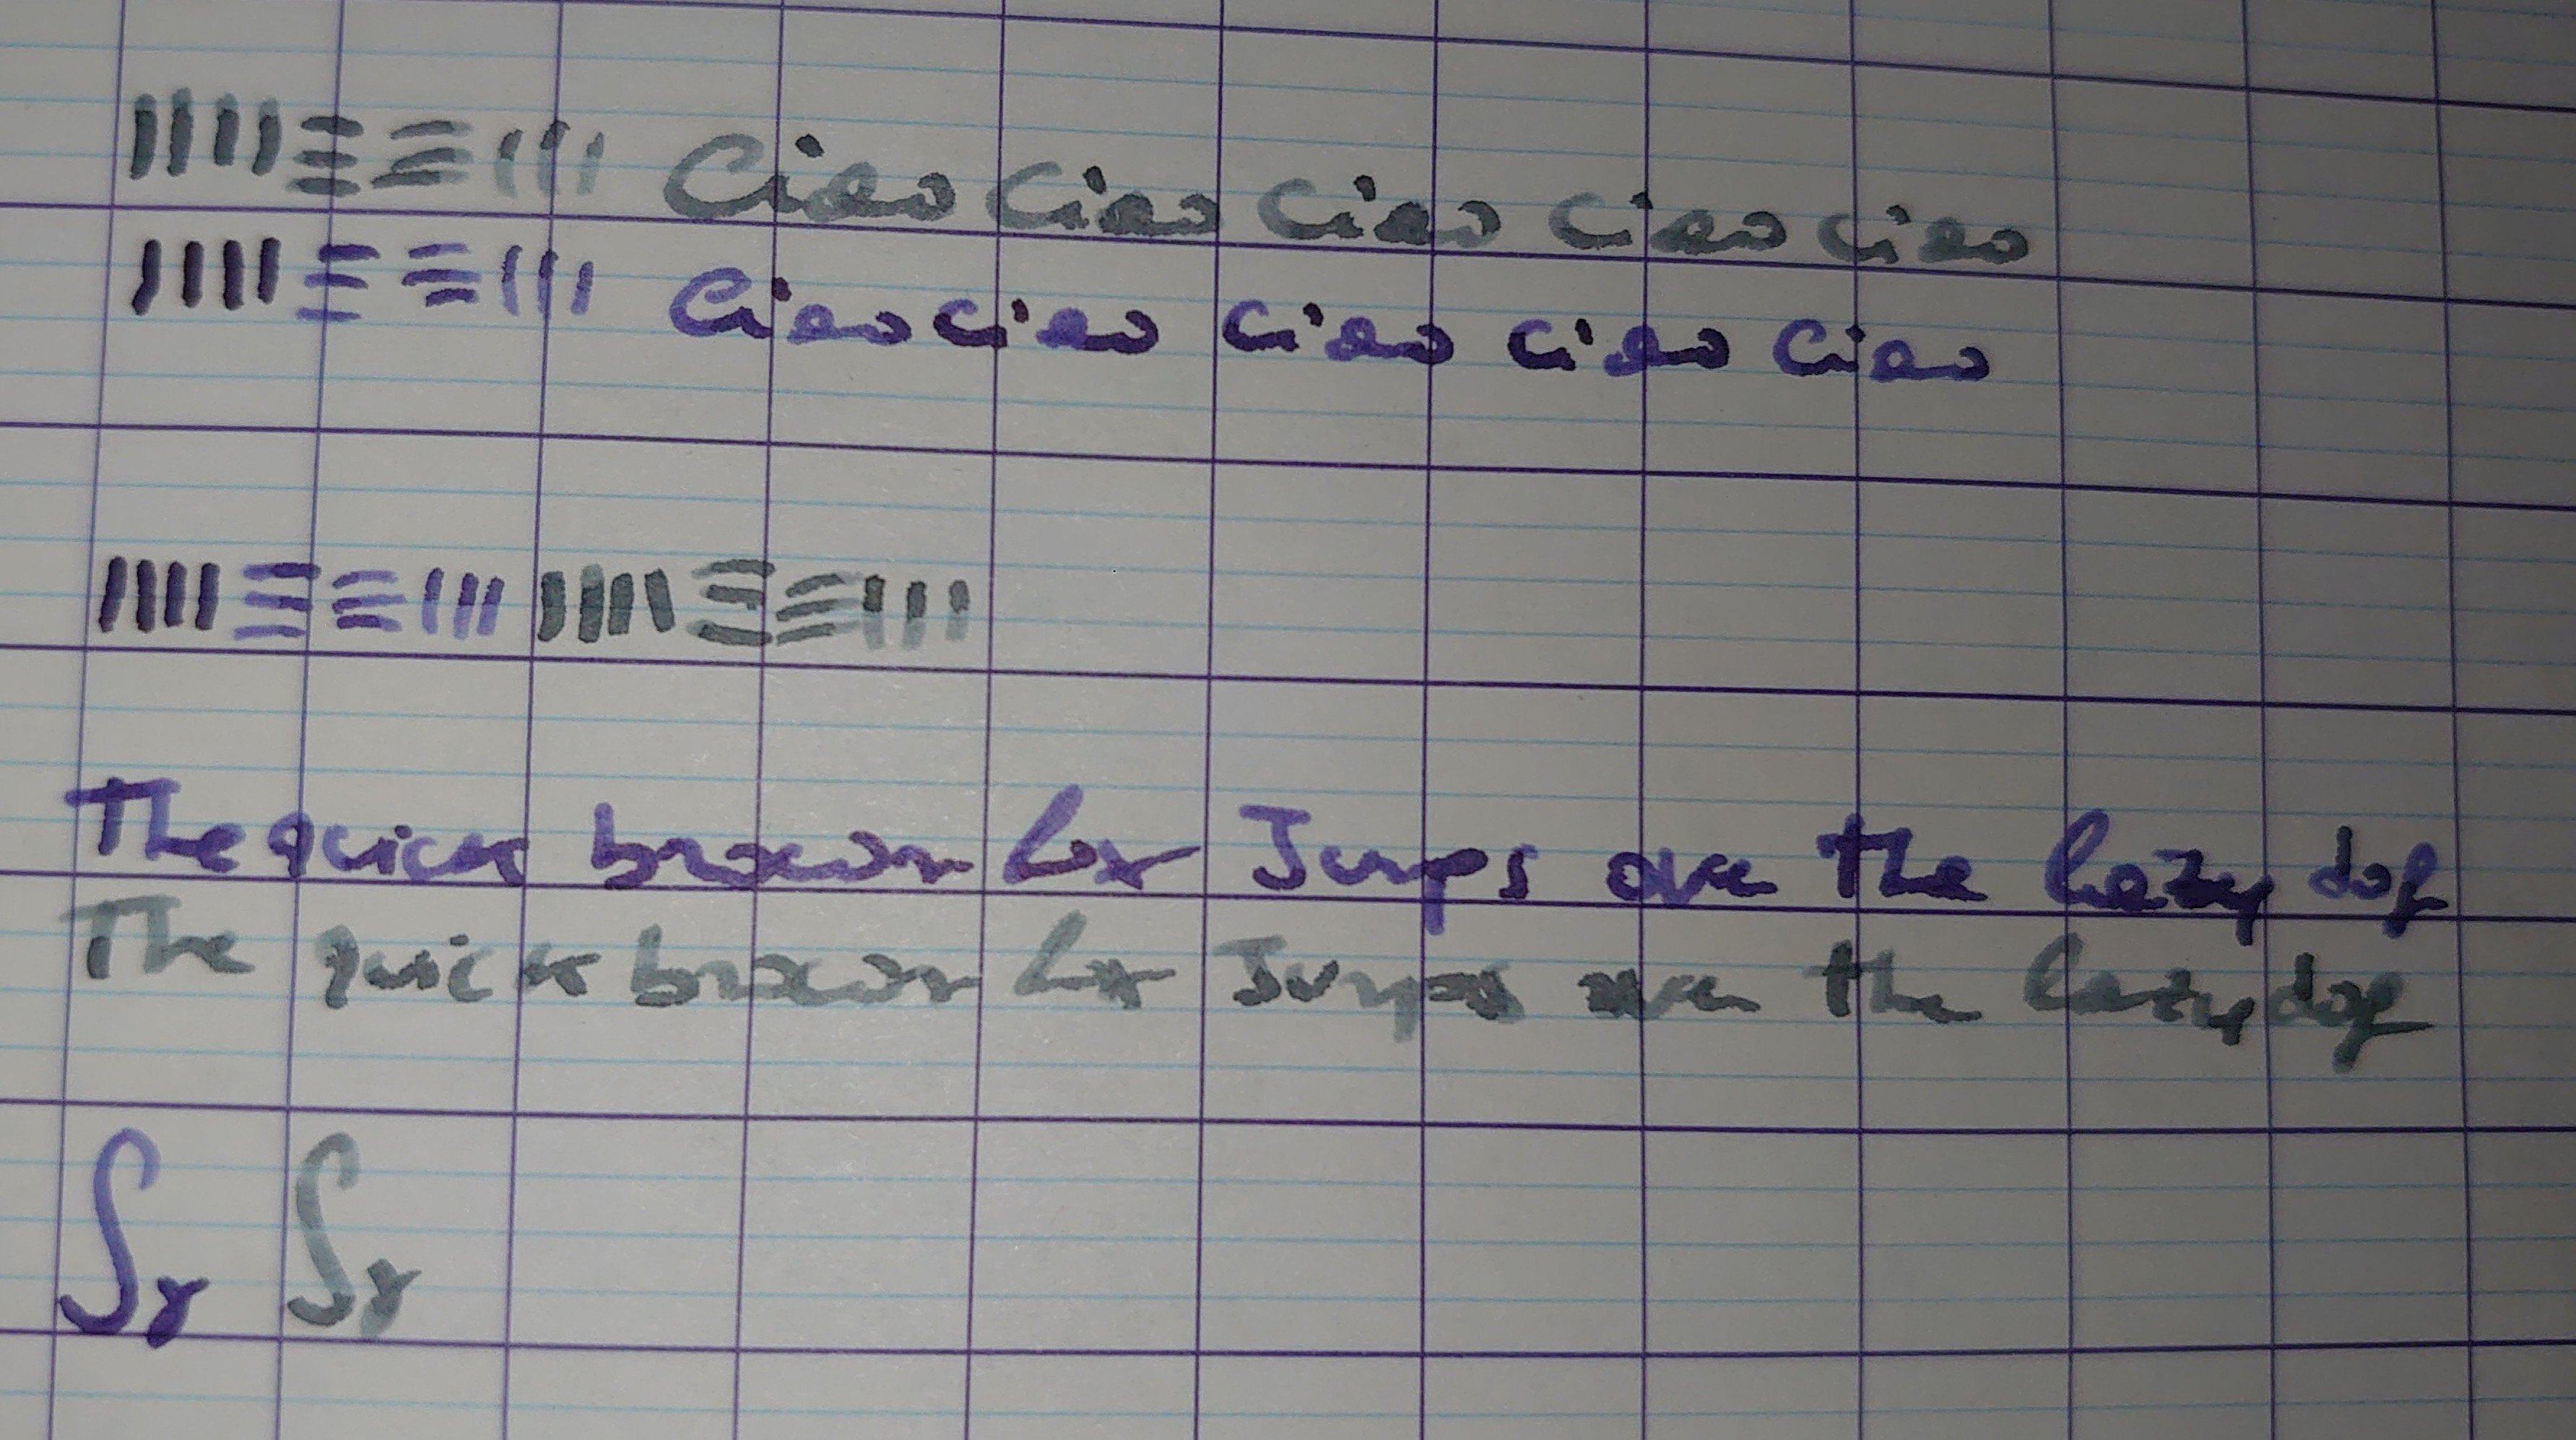 Ciao Ciao Ciao Ciao Ciao
Ciao Ciao Ciao Ciao Ciao
The quick brown fox Jumps over the lazy dog
The quick brown fox Jumps over the lazy dog
∫γ ∫γ